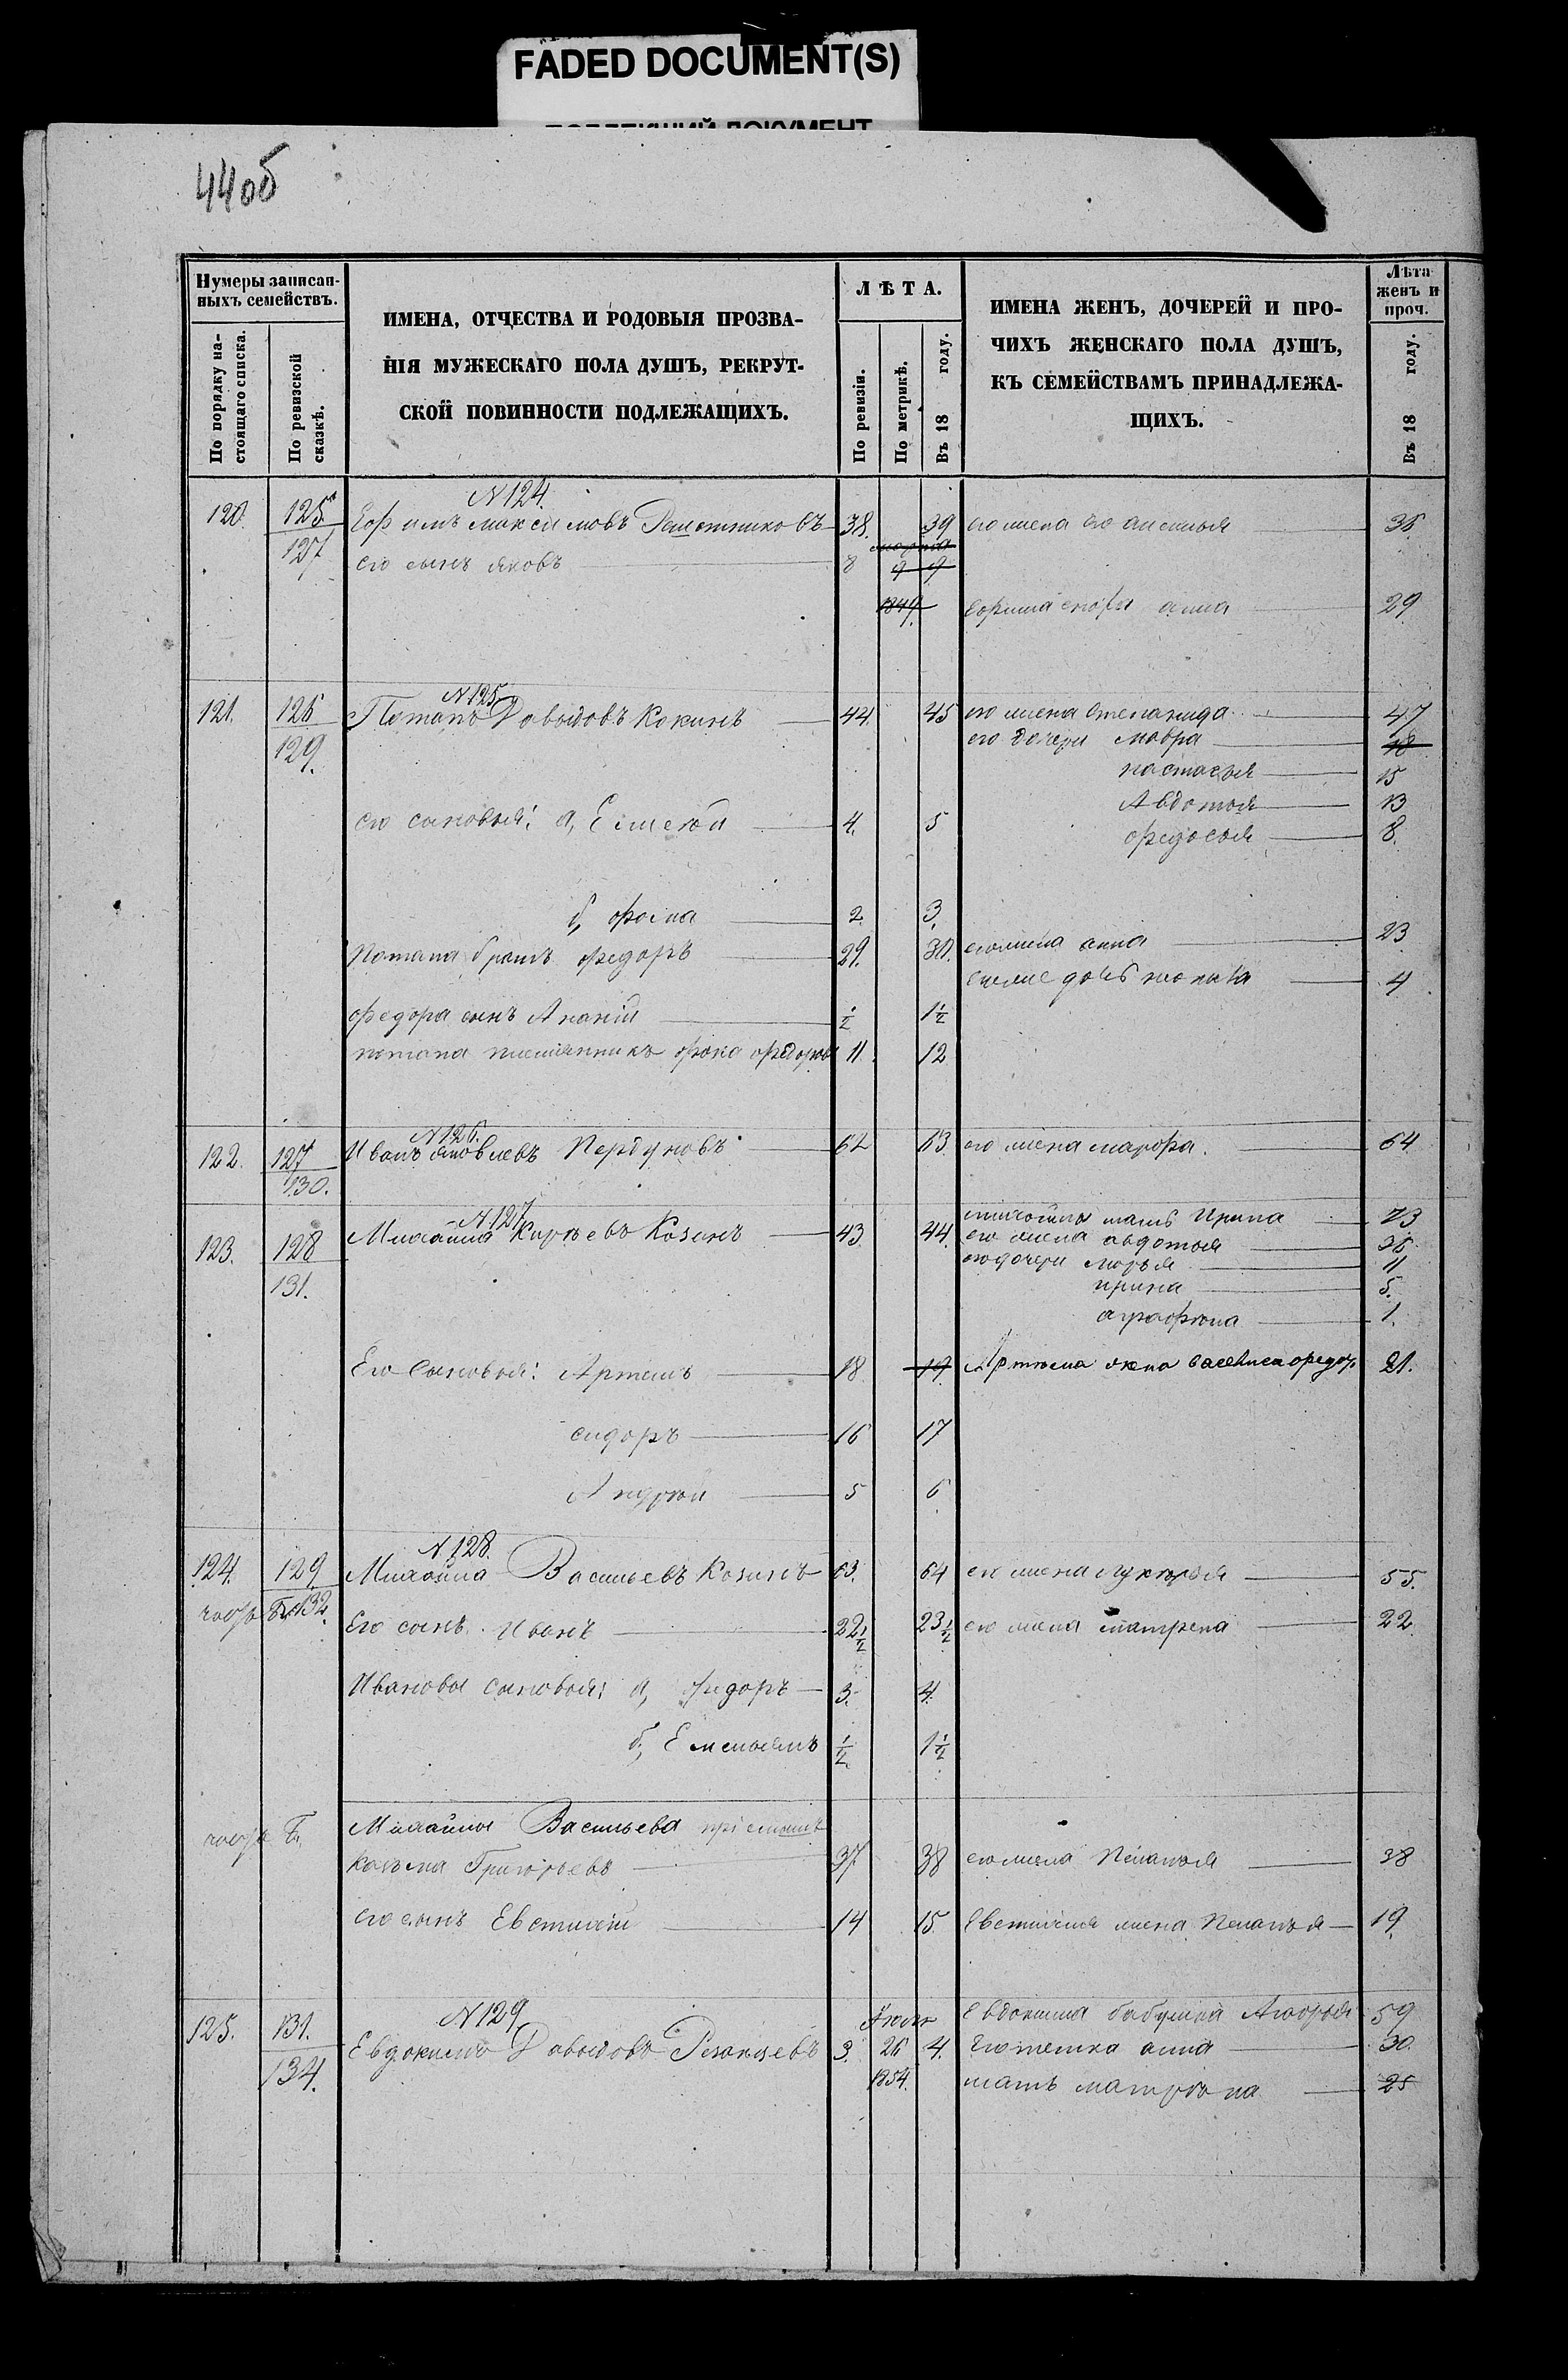 FADED DOCUMENT(S)
44об
Нумеры записан-
ныхъ семействъ.
По порядку на-
стоящаго списка.
По ревизской
сказкѣ.
ИМЕНА, ОТЧЕСТВА И РОДОВЫЯ ПРОЗВА-
НІЯ МУЖЕСКАГО ПОЛА ДУШЪ, РЕКРУТ-
СКОЙ ПОВИННОСТИ ПОДЛЕЖАЩИХЪ.
ЛѢТА.
По ревизіи.
По метрикѣ.
Въ 18 году.
ИМЕНА ЖЕНЪ, ДОЧЕРЕЙ И ПРО-
ЧИХЪ ЖЕНСКАГО ПОЛА ДУШЪ,
КЪ СЕМЕЙСТВАМЪ ПРИНАДЛЕЖА-
ЩИХЪ.
Лѣта
женъ и
проч.
Въ 18 году.
N 124.
120. 125 Ефимъ Максимовъ Решетниковъ 38. 39 его жена 36.
127 его сынъ яковъ 8 9 9
1849. анна 29
N 125
121. 126 Потапъ Давыдовъ Кокинъ 44 45 его жена степанида 47
129. его дочери мавра 18
настасья 15
Авдотья 13
его сыновья: а, Елисей 4. 5
федосья 8.
б, фома 2 3.
Потапа братъ федоръ 29. 30. его жена анна 23
4
федора сынъ Ананій ½ 1½
потапа племянникъ фока федоровъ 11. 12
N 126.
122. 127 Иванъ яковлевъ Пердуновъ 62 63 его жена марфа. 64
130.
N 127
михайлы мать Ирина 73
123. 128 Михайла Кирѣевъ Козинъ 43 44. его жена авдотья 36
131. его дочери марья 11
ирина 5.
аграфена 1.
Его сыновья: Артемъ 18 19 Артема жена василиса федор. 21.
сидоръ 16 17
Андрей 5 6
N 128.
124. 129 Михайла Васильевъ Козинъ 63. 64 его жена лукерья 55.
132. Его сынъ Иванъ 22½ 23½ его жена матрена 22
Ивановы сыновья: а, федоръ 3. 4.
б, Емельянъ ½ 1½
Михайлы Васильева пріемышъ
Козьма Григорьевъ 37 38 его жена Пелагья 38
его сынъ Евстигній 14 15 Евстигнія жена Пелагья 19.
N 129
Іюля Евдокима бабушка 59
125. 131. Евдокимъ Давыдовъ Резанцевъ 3. 26 4. Его тетка анна 30.
134. 1854. мать матрена 25